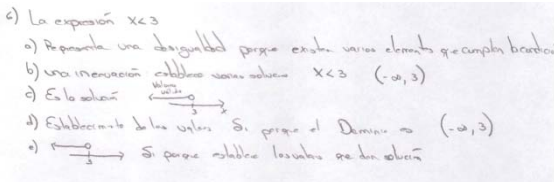 c) La expresión x<3
a) Representa una desigualdad porque existen varios elementos que cumplan la condición
b) una inecuación establece varias soluciones x<3 (-∞, 3)
c) Es la solución Valores válidos 3
d) Establecimiento de los valores Si porque el Dominio es (-∞, 3)
e) 3 Si porque establece los valores que dan solución